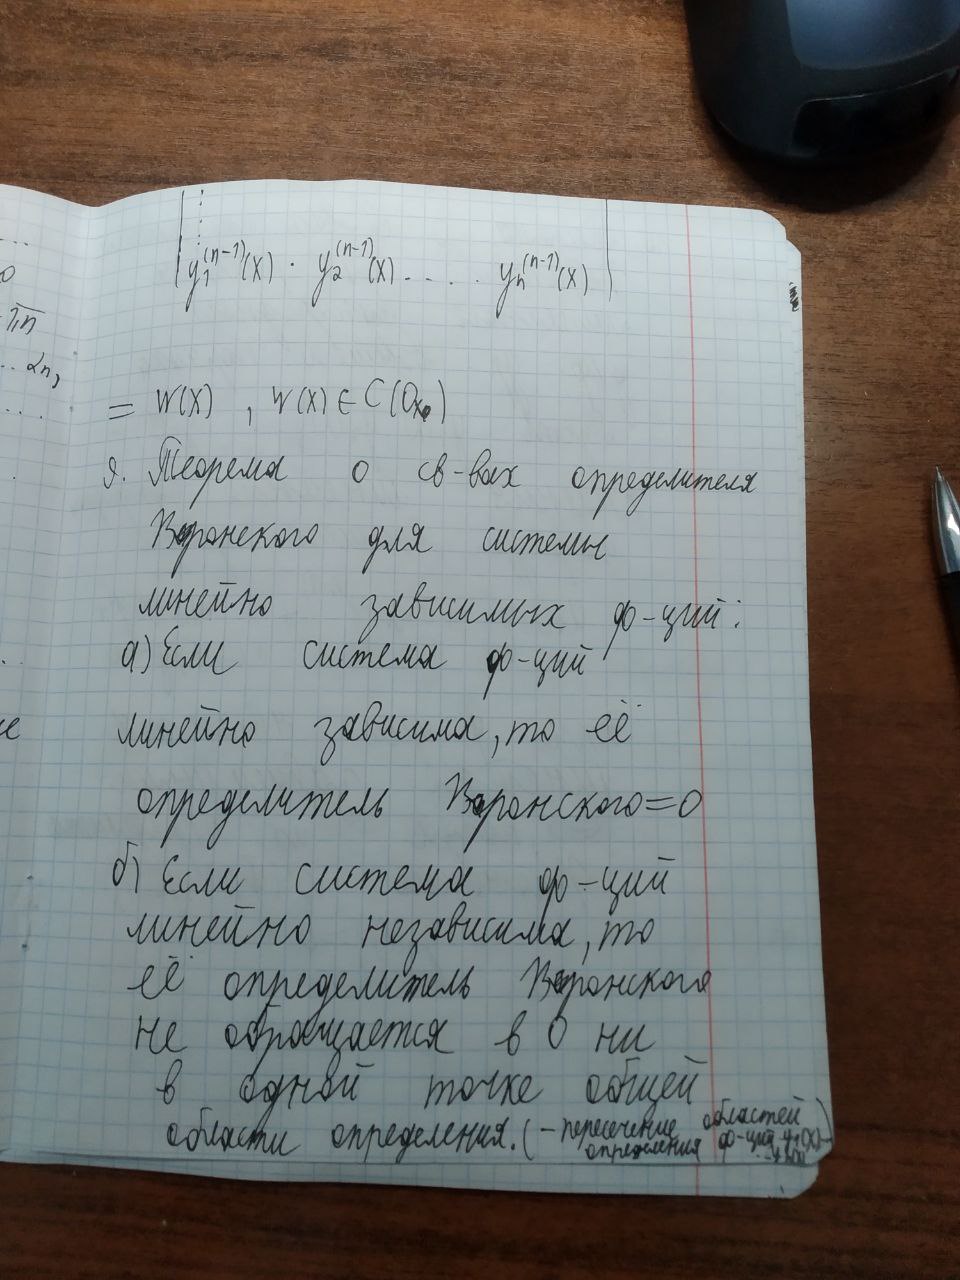 ...
0
πn
... αn,
....
y₁⁽ⁿ⁻¹⁾(x) · y₂⁽ⁿ⁻¹⁾(x) . . . . yₙ⁽ⁿ⁻¹⁾(x)
= W(x) , W(x) ∈ C(Oₓ₀)
я. Теорема о св-вах определителя
Вронского для системы
линейно зависимых ф-ций:
а) Если система ф-ций
линейно зависима, то её
определитель Вронского=0
б) Если система ф-ций
линейно независима, то
её определитель Вронского
не обращается в 0 ни
в одной точке общей
области определения. (-пересечение областей
определения ф-ций y₁(x)